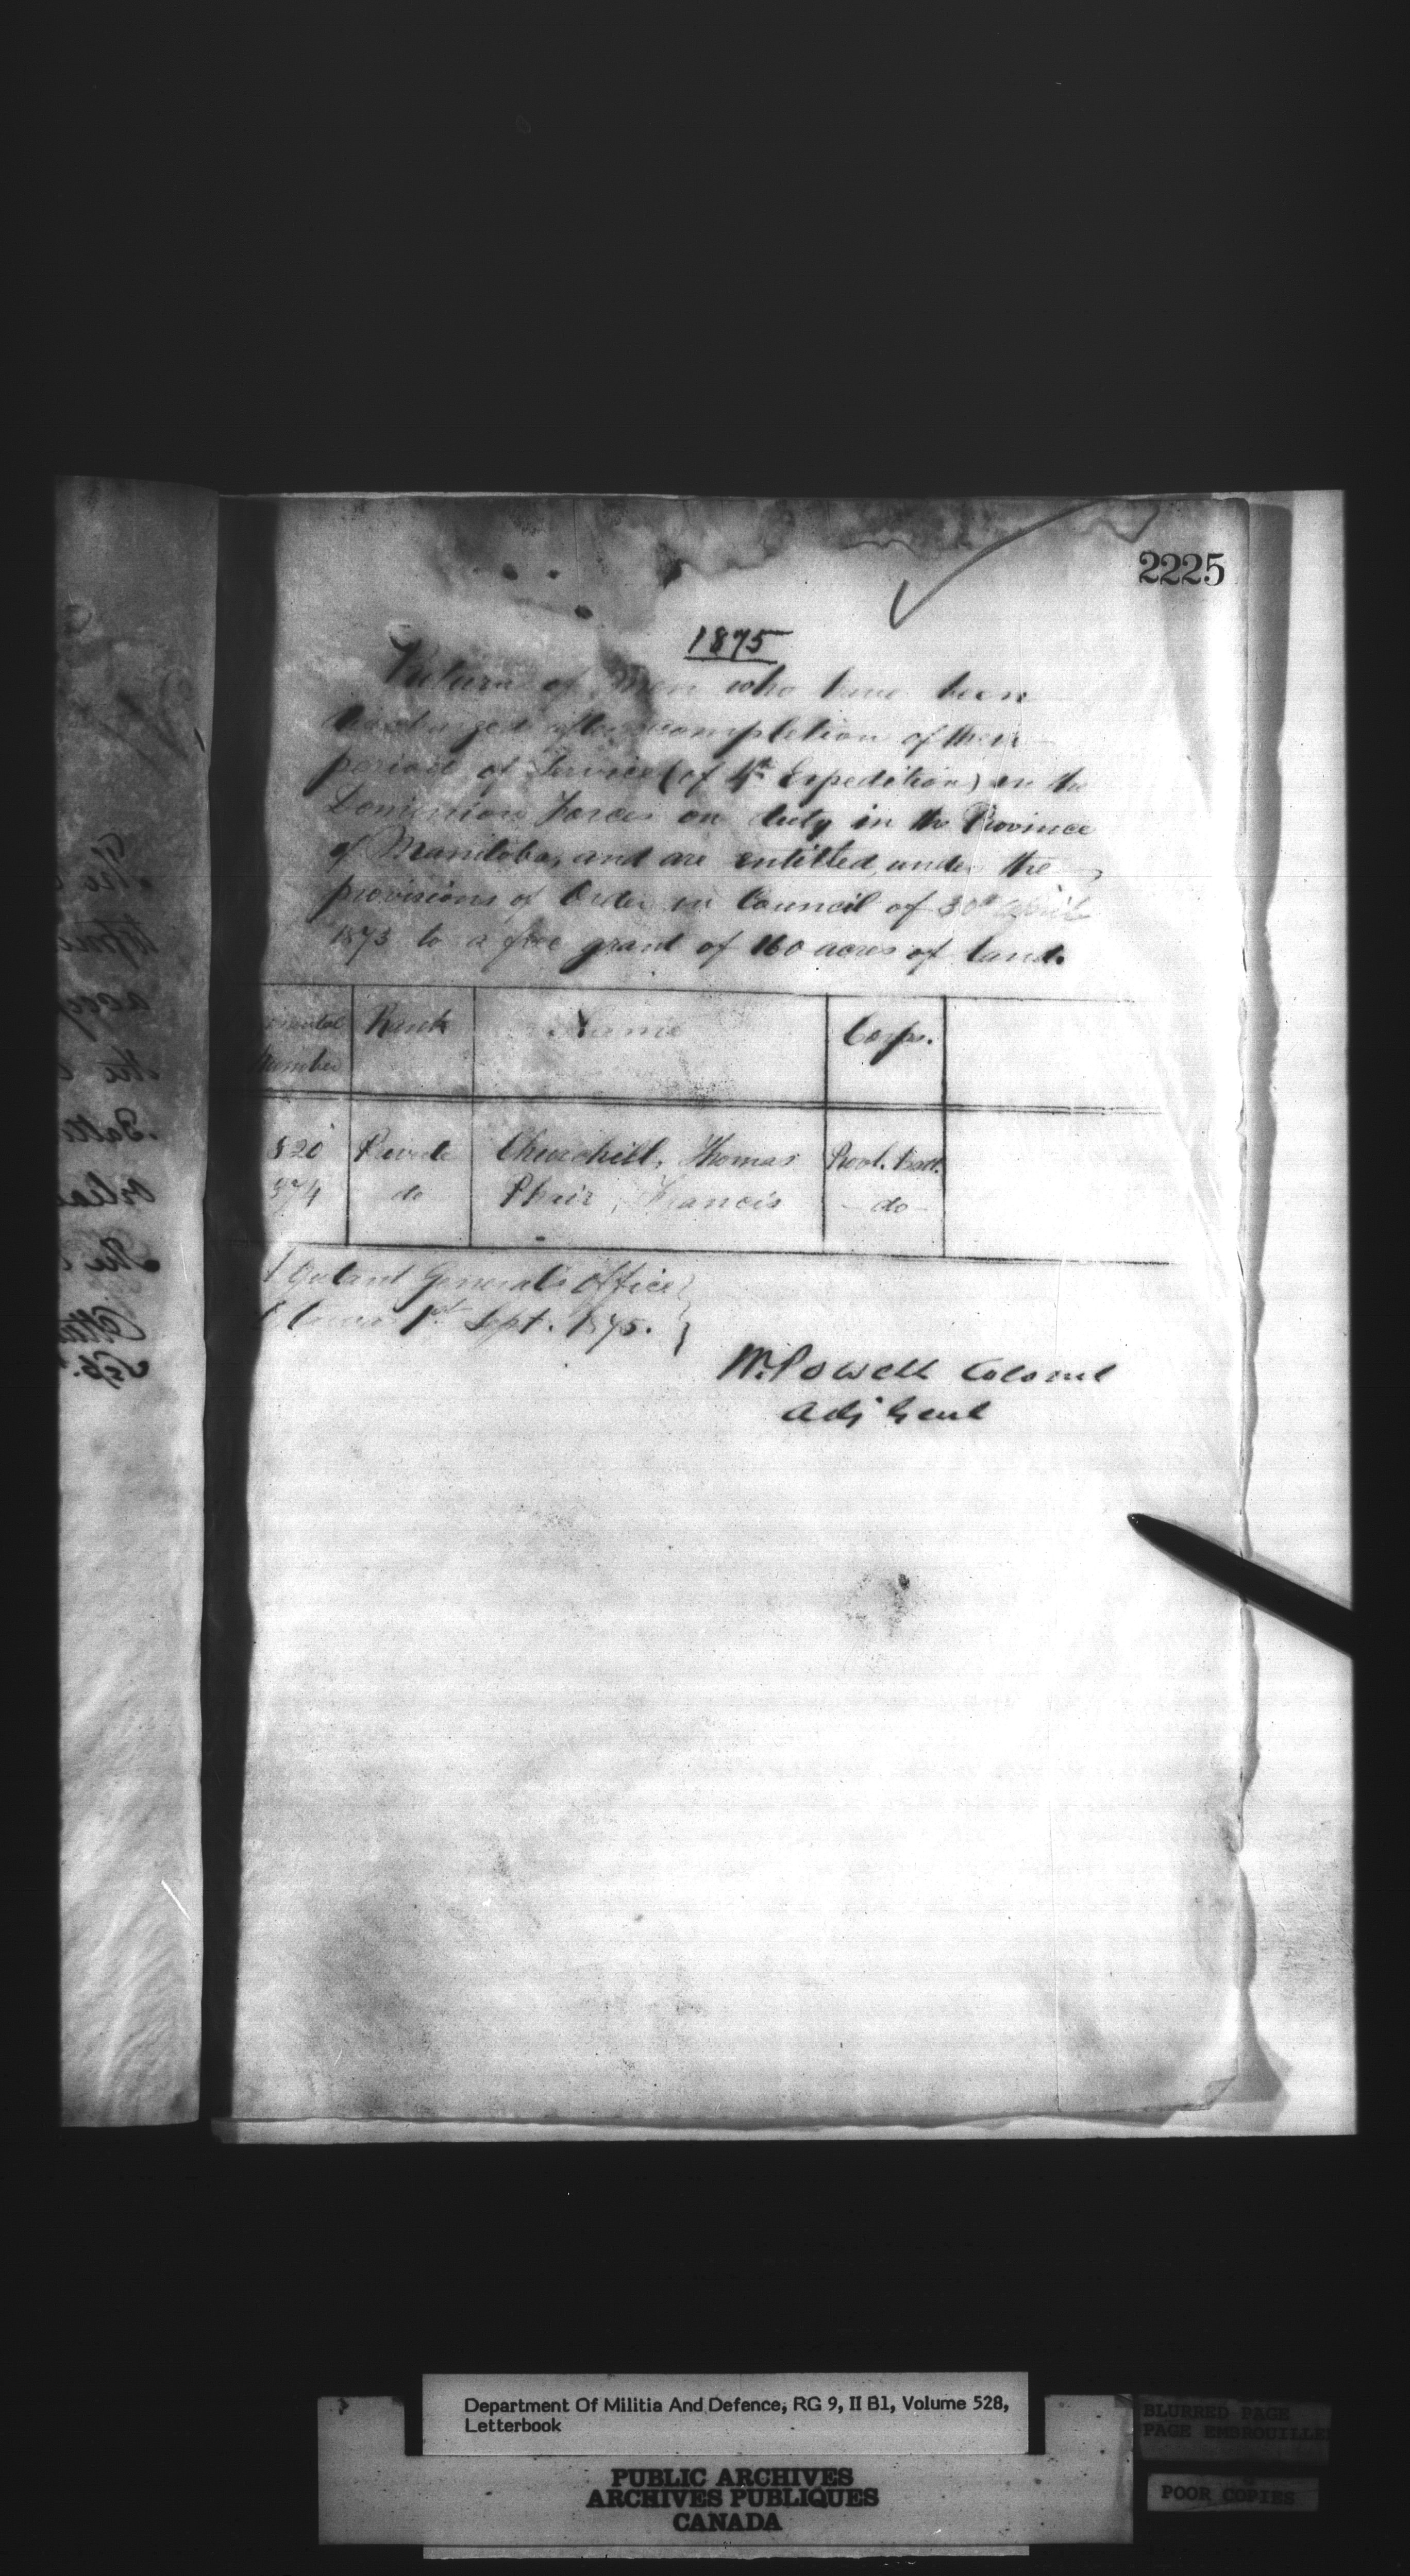 2225
1875
Return of Men who have been
discharged after completion of their
period of Service (of 4th Expedition) in the
Dominion Forces on duty in the Province
of Manitoba, and are entitled, under the
provisions of Order in Council of 30th April
1873 to a free grant of 160 acres of land.
Rank Name Corps.
Number
820 Private Churchill, Thomas Provl. Batt.
374 do Phair, Francis - do -
Adjutant General's Office
Ottawa 1st Sept. 1875.
W. Powell Colonel
Adj Genl
Department Of Militia And Defence, RG 9, II B1, Volume 528,
Letterbook
PUBLIC ARCHIVES
ARCHIVES PUBLIQUES
CANADA
BLURRED PAGE
PAGE EMBROUILLE
POOR COPIES